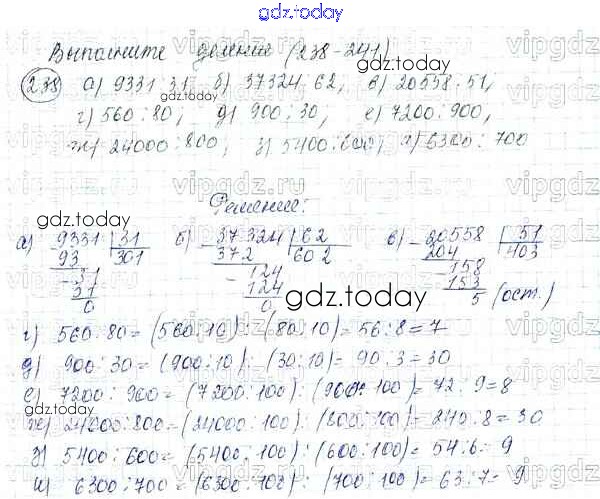 gdz.today
Выполните деление (238-241)
238 а) 9331:31, б) 37324:62, в) 20558:51,
г) 560:80, д) 900:30, е) 7200:900,
ж) 24000:800, з) 5400:600, и) 6300:700
Решение:
а) 9331 | 31 б) 37324 | 62 в) 20558 | 51
93 301 372 602 204 403
31 124 158
31 124 153
0 0 5 (ост.)
г) 560:80 = (560:10) : (80:10) = 56:8 = 7
д) 900:30 = (900:10) : (30:10) = 90:3 = 30
е) 7200:900 = (7200:100) : (900:100) = 72:9 = 8
ж) 24000:800 = (24000:100) : (800:100) = 240:8 = 30
з) 5400:600 = (5400:100) : (600:100) = 54:6 = 9
и) 6300:700 = (6300:100) : (700:100) = 63:7 = 9
gdz.today
gdz.today
gdz.today
gdz.today
vipgdz.ru